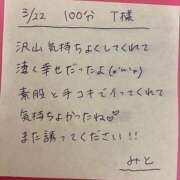 3/22 100分 T様
沢山気持ちよくしてくれて
凄く幸せだったよ(*'ω'*)
素股と手コキでイってくれて
気持ちよかったね♡
また誘ってください!!
みと